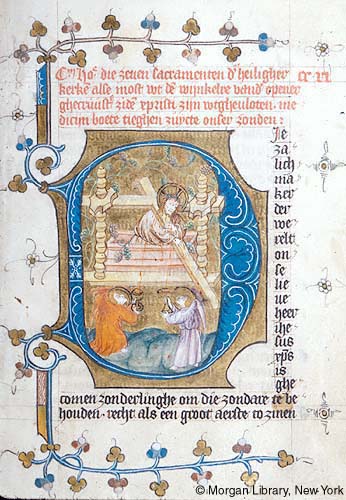 die zeven sacramenten d' heiligher
kerke alse most wt d' wijnkelre vand' opener
zide xpristi zijn wtghevloten · me
dicijn boete tieghen zwete onser zonden :
cc · vi
De
za
lich
ma
ker
der
we
relt
on
se
lie
ue
heer
ihe
sus
xps
is
ghe
comen zonderlinghe om die zondare te be
houden · recht als een groot aerste to zinen
© Morgan Library, New York